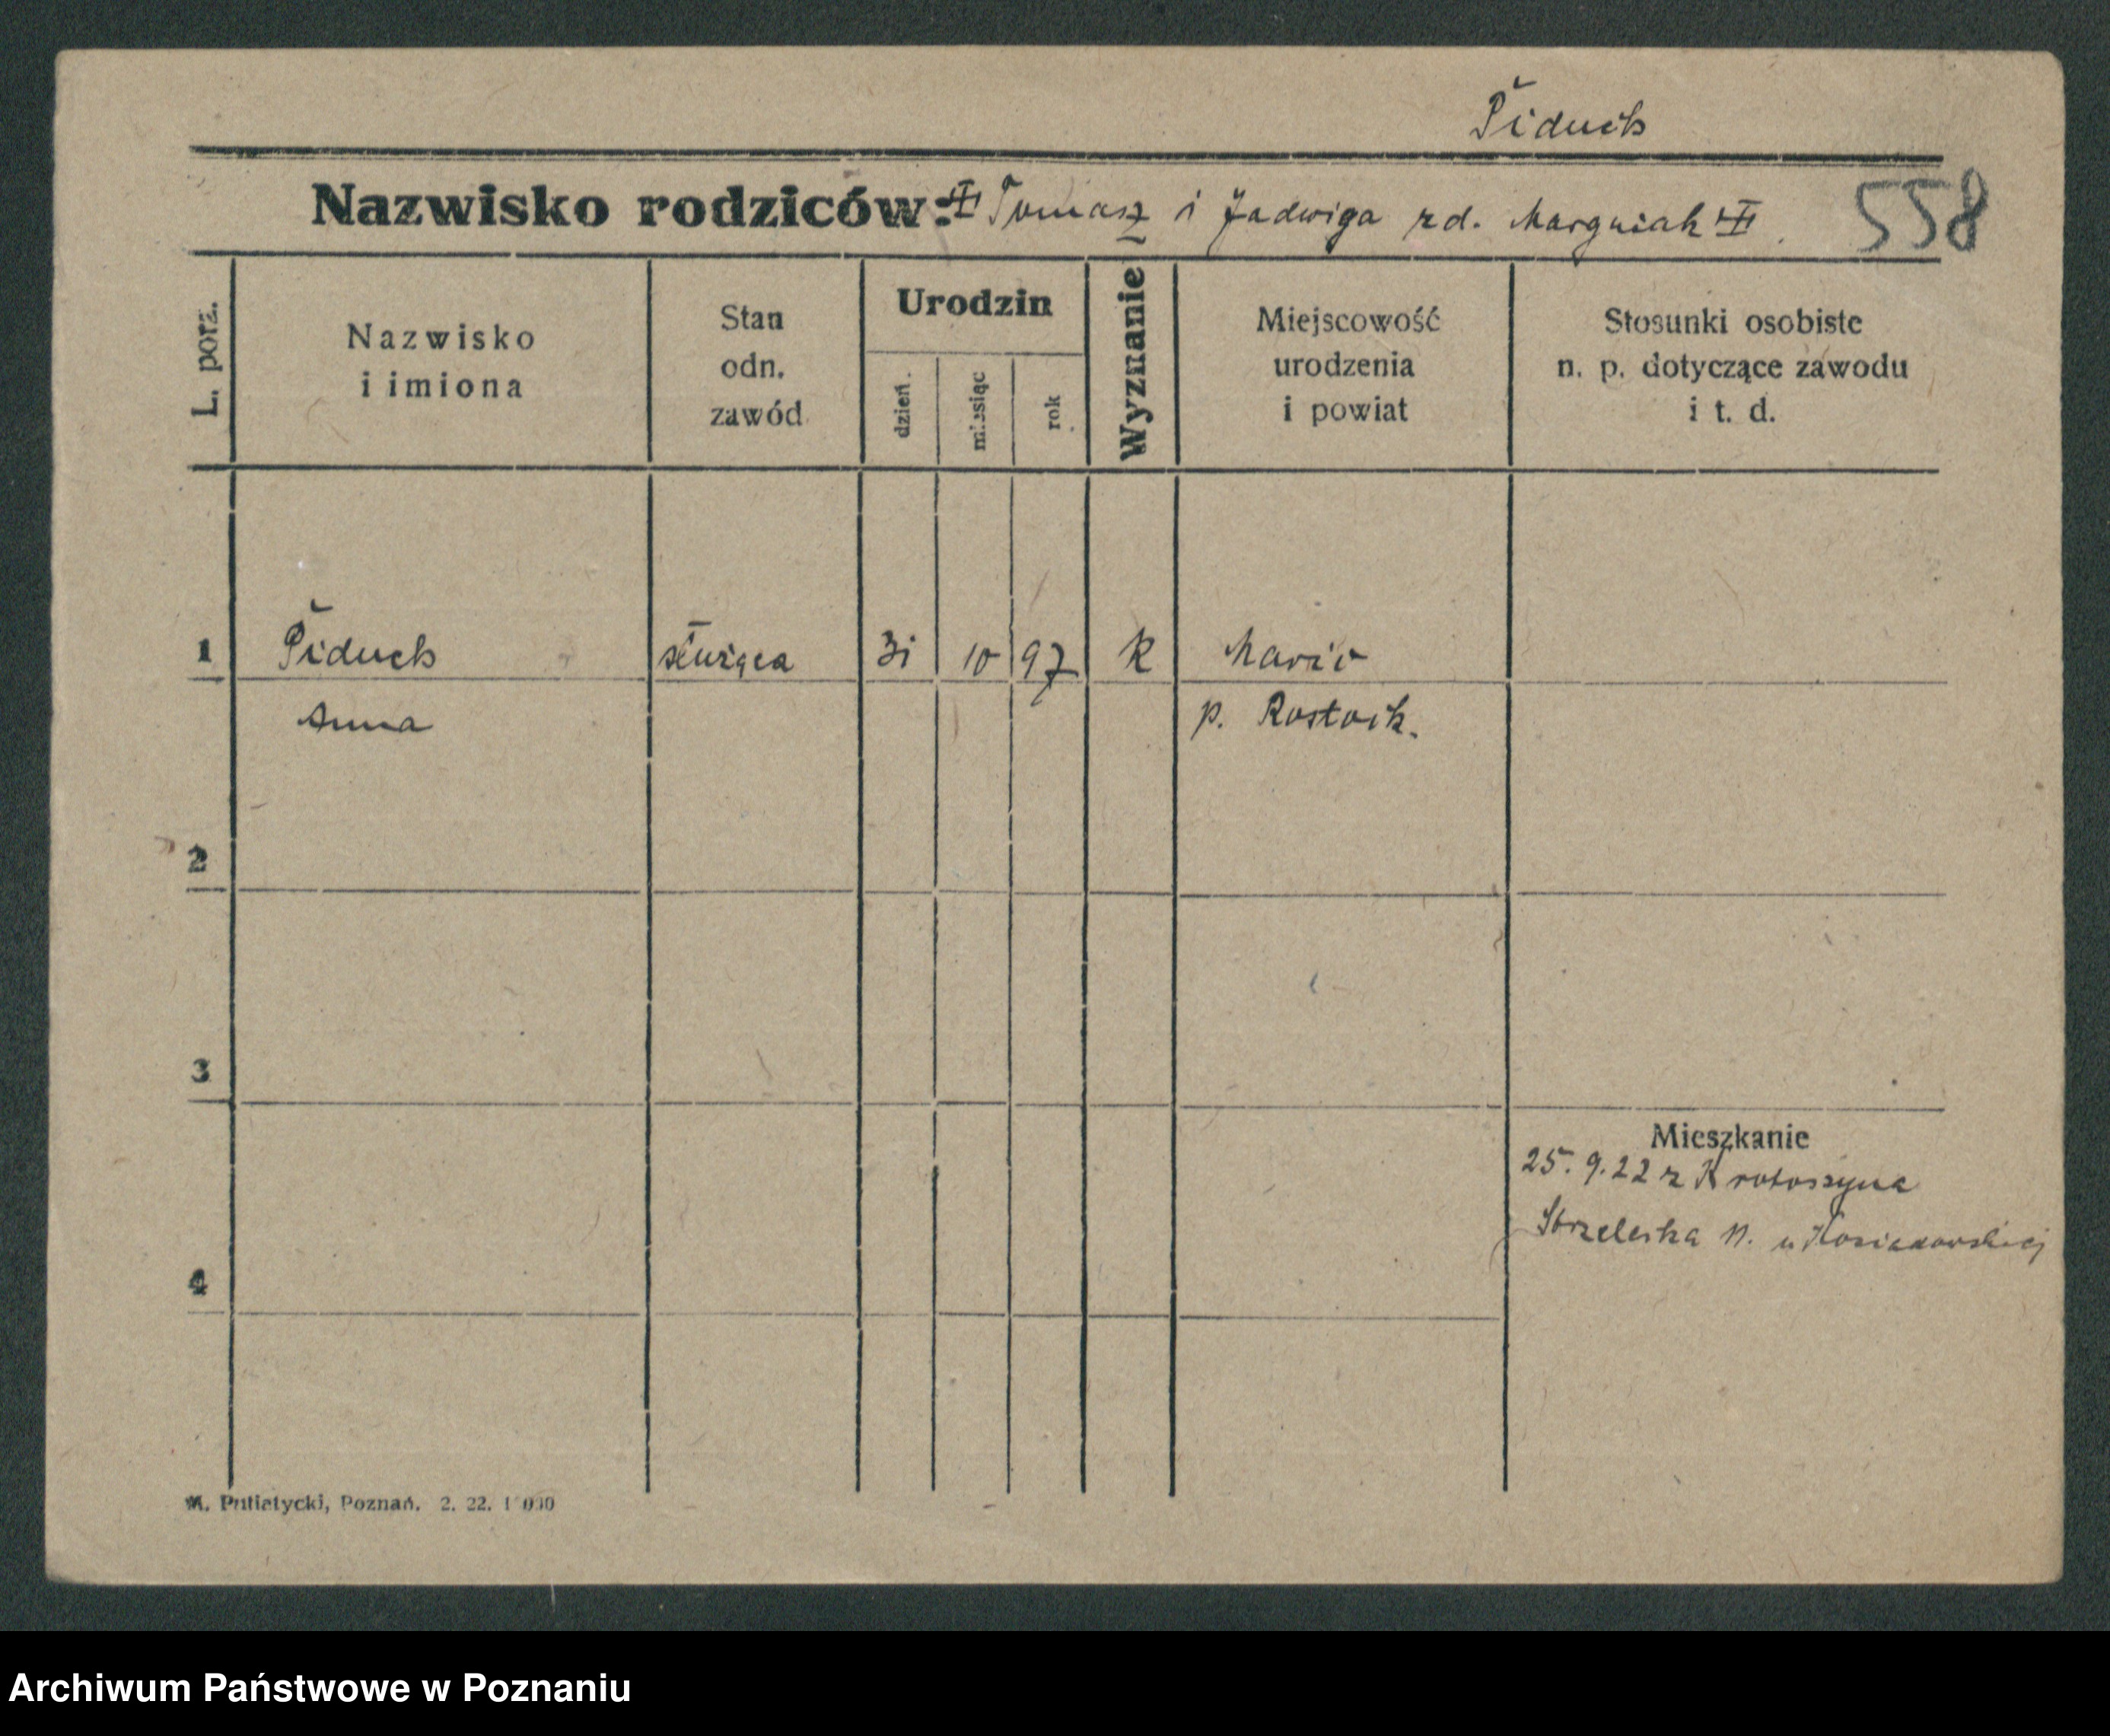 Piduch
Nazwisko rodziców: Tomasz i Jadwiga zd. Marguiak
558
L. porz.
Nazwisko
i imiona
Stan
odn.
zawód
Urodzin
dzień.
miesiąc
rok
Wyznanie
Miejscowość
urodzenia
i powiat
Stosunki osobiste
n. p. dotyczące zawodu
i t. d.
1 Piduch służąca 31 10 97 k
Anna p. Rostock.
2
3
Mieszkanie
25. 9. 22 z Krotoszyna
Strzelecka 11. u
4
M. Putiatycki, Poznań. 2. 22.
Archiwum Państwowe w Poznaniu